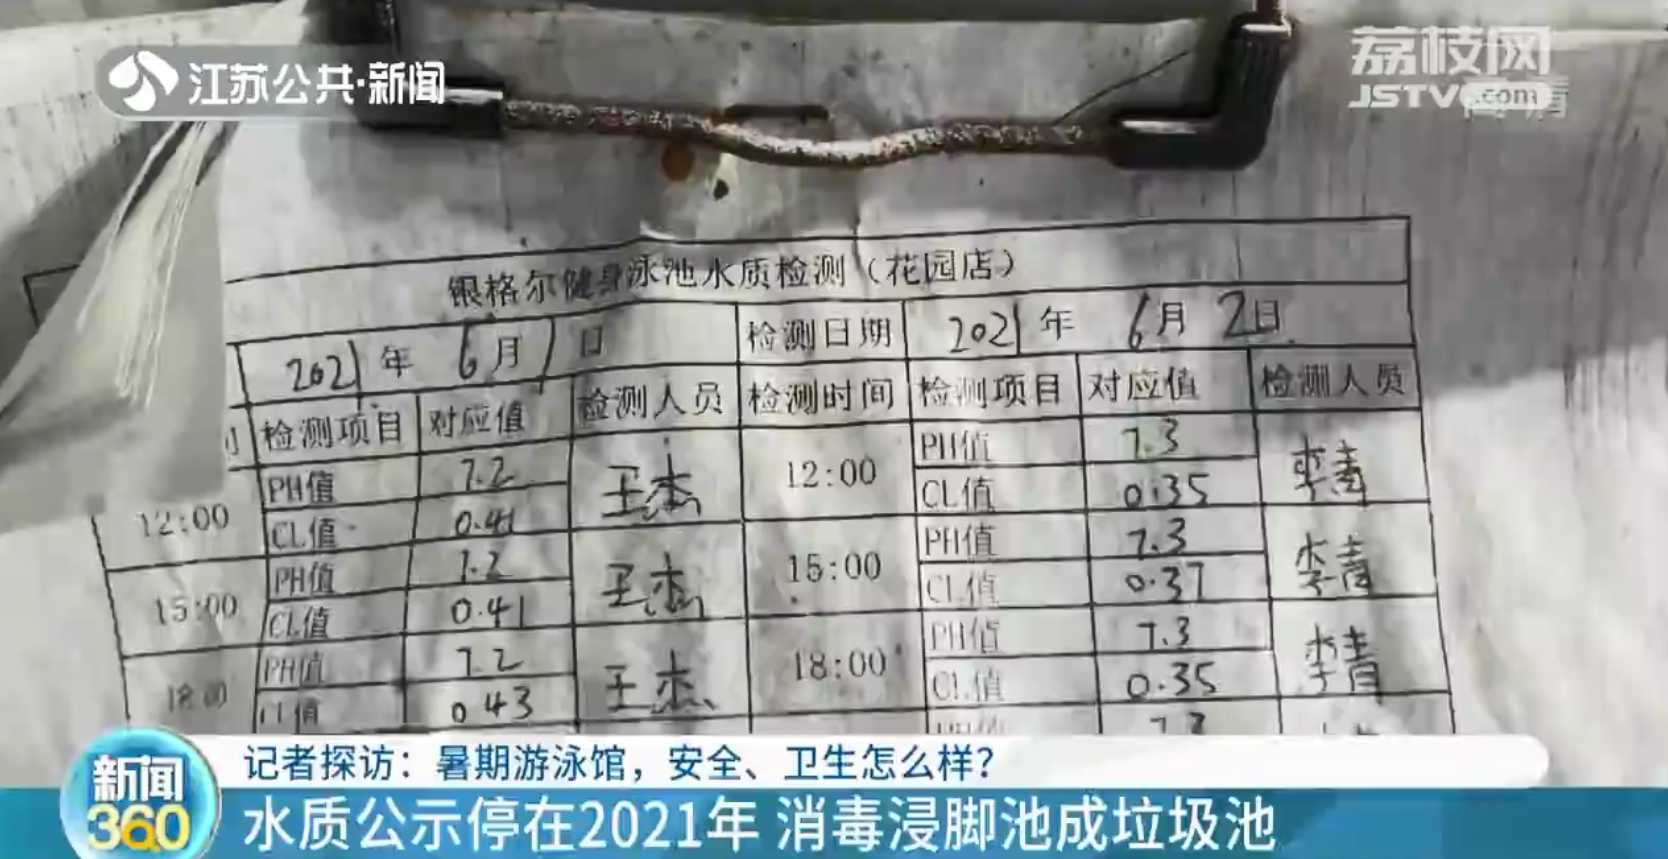 江苏公共·新闻
荔枝网
JSTV.com
高清
银格尔健身泳池水质检测（花园店）
2021年 6月1日 检测日期 2021年 6月2日
检测项目 对应值 检测人员 检测时间 检测项目 对应值 检测人员
12:00 PH值 7.2 王杰 12:00 PH值 7.3 李青
CL值 0.41 CL值 0.35
15:00 PH值 7.2 王杰 15:00 PH值 7.3 李青
CL值 0.41 CL值 0.37
18:00 PH值 7.2 王杰 18:00 PH值 7.3 李青
CL值 0.43 CL值 0.35
PH值 7.3
新闻
360
记者探访：暑期游泳馆，安全、卫生怎么样？
水质公示停在2021年 消毒浸脚池成垃圾池